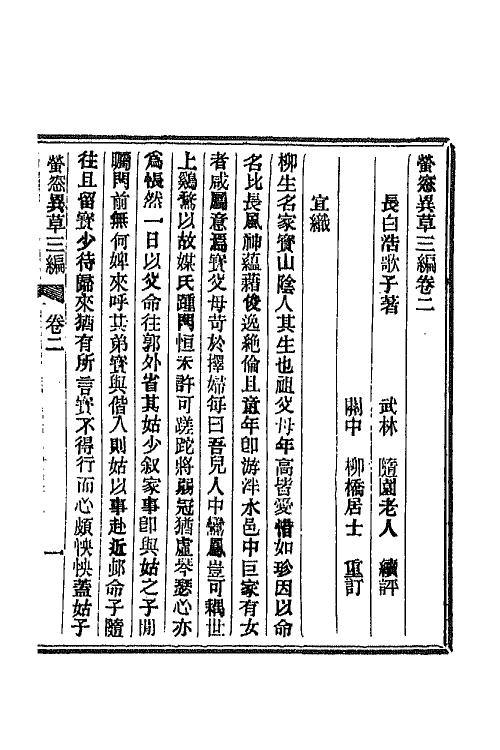 螢窓異草三編卷二
長白浩歌子著　武林　隨園老人　續評
關中　柳橋居士　重訂
宜織
柳生名家寳山陰人其生也祖父母年高皆愛惜如珍因以命
名比長風神蘊藉俊逸絶倫且童年卽游泮水邑中巨家有女
者咸屬意焉寳父母苛於擇婦每曰吾兒人中鸞鳳豈可耦世
上鷄鶩以故媒氏踵門恒未許可蹉跎將弱冠猶虛琴瑟心亦
爲悵然一日以父命往郭外省其姑少叙家事卽與姑之子閒
矚門前無何婢來呼其弟寳與偕入則姑以事赴近邨命子隨
往且留寳少待歸來猶有所言寳不得行而心頗怏怏蓋姑子
螢窓異草三編　卷二　一